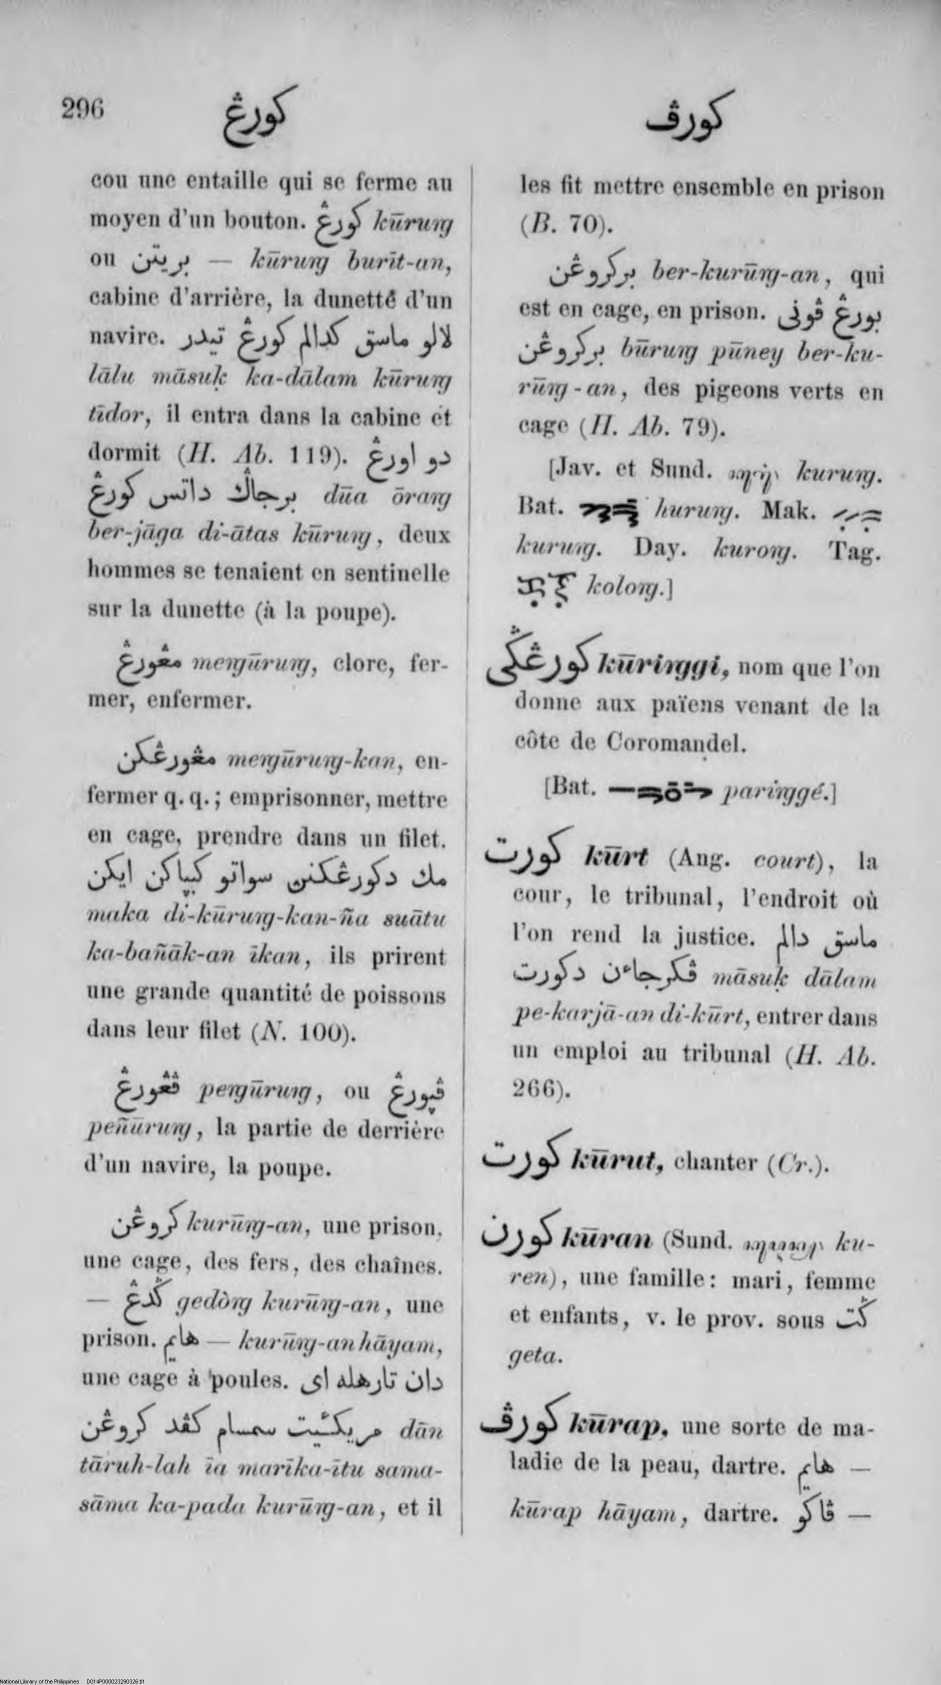 296
كورڠ
كورڤ
cou une entaille qui se ferme au
moyen d'un bouton. كورڠ kūrurg
ou بريتن — kūrurg burīt-an,
cabine d'arrière, la dunetté d'un
navire. لالو ماسق كدالم كورڠ تيدر
lālu māsuḳ ka-dālam kūrurg
tīdor, il entra dans la cabine et
dormit (H. Ab. 119). دو اورڠ
برجاݢ داتس كورڠ dūa ōrarg
ber-jāga di-ātas kūrurg, deux
hommes se tenaient en sentinelle
sur la dunette (à la poupe).
مڠورڠ mergūrurg, clore, fer-
mer, enfermer.
مڠورڠكن mergūrurg-kan, en-
fermer q. q.; emprisonner, mettre
en cage, prendre dans un filet.
مك دكورڠكنن سواتو كبڽاكن ايكن
maka di-kūrurg-kan-ña suātu
ka-bañāk-an īkan, ils prirent
une grande quantité de poissons
dans leur filet (N. 100).
ڤڠورڠ pergūrurg, ou ڤڽورڠ
peñūrurg, la partie de derrière
d'un navire, la poupe.
كروڠن kurūrg-an, une prison,
une cage, des fers, des chaînes.
— ݢدڠ gedòrg kurūrg-an, une
prison. هايم — kurūrg-an hāyam,
une cage à poules. دان تارهله اي
مريكئيت سمسام كڤد كروڠن dān
tāruh-lah īa marīka-ītu sama-
sāma ka-pada kurūrg-an, et il
les fit mettre ensemble en prison
(B. 70).
بركروڠن ber-kurūrg-an, qui
est en cage, en prison. بورڠ ڤوني
بركروڠن būrurg pūney ber-ku-
rūrg-an, des pigeons verts en
cage (H. Ab. 79).
[Jav. et Sund. kururg.
Bat. hururg. Mak.
kururg. Day. kurorg. Tag.
kolorg.]
كورڠݢي kūrirggi, nom que l'on
donne aux païens venant de la
côte de Coromandel.
[Bat. parirggé.]
كورت kūrt (Ang. court), la
cour, le tribunal, l'endroit où
l'on rend la justice. ماسق دالم
ڤكرجاءن دكورت māsuḳ dālam
pe-karjā-an di-kūrt, entrer dans
un emploi au tribunal (H. Ab.
266).
كورت kūrut, chanter (Cr.).
كورن kūran (Sund. ku-
ren), une famille: mari, femme
et enfants, v. le prov. sous ݢت
geta.
كورڤ kūrap, une sorte de ma-
ladie de la peau, dartre. هايم —
kūrap hāyam, dartre. ڤاكو —
National Library of the Philippines